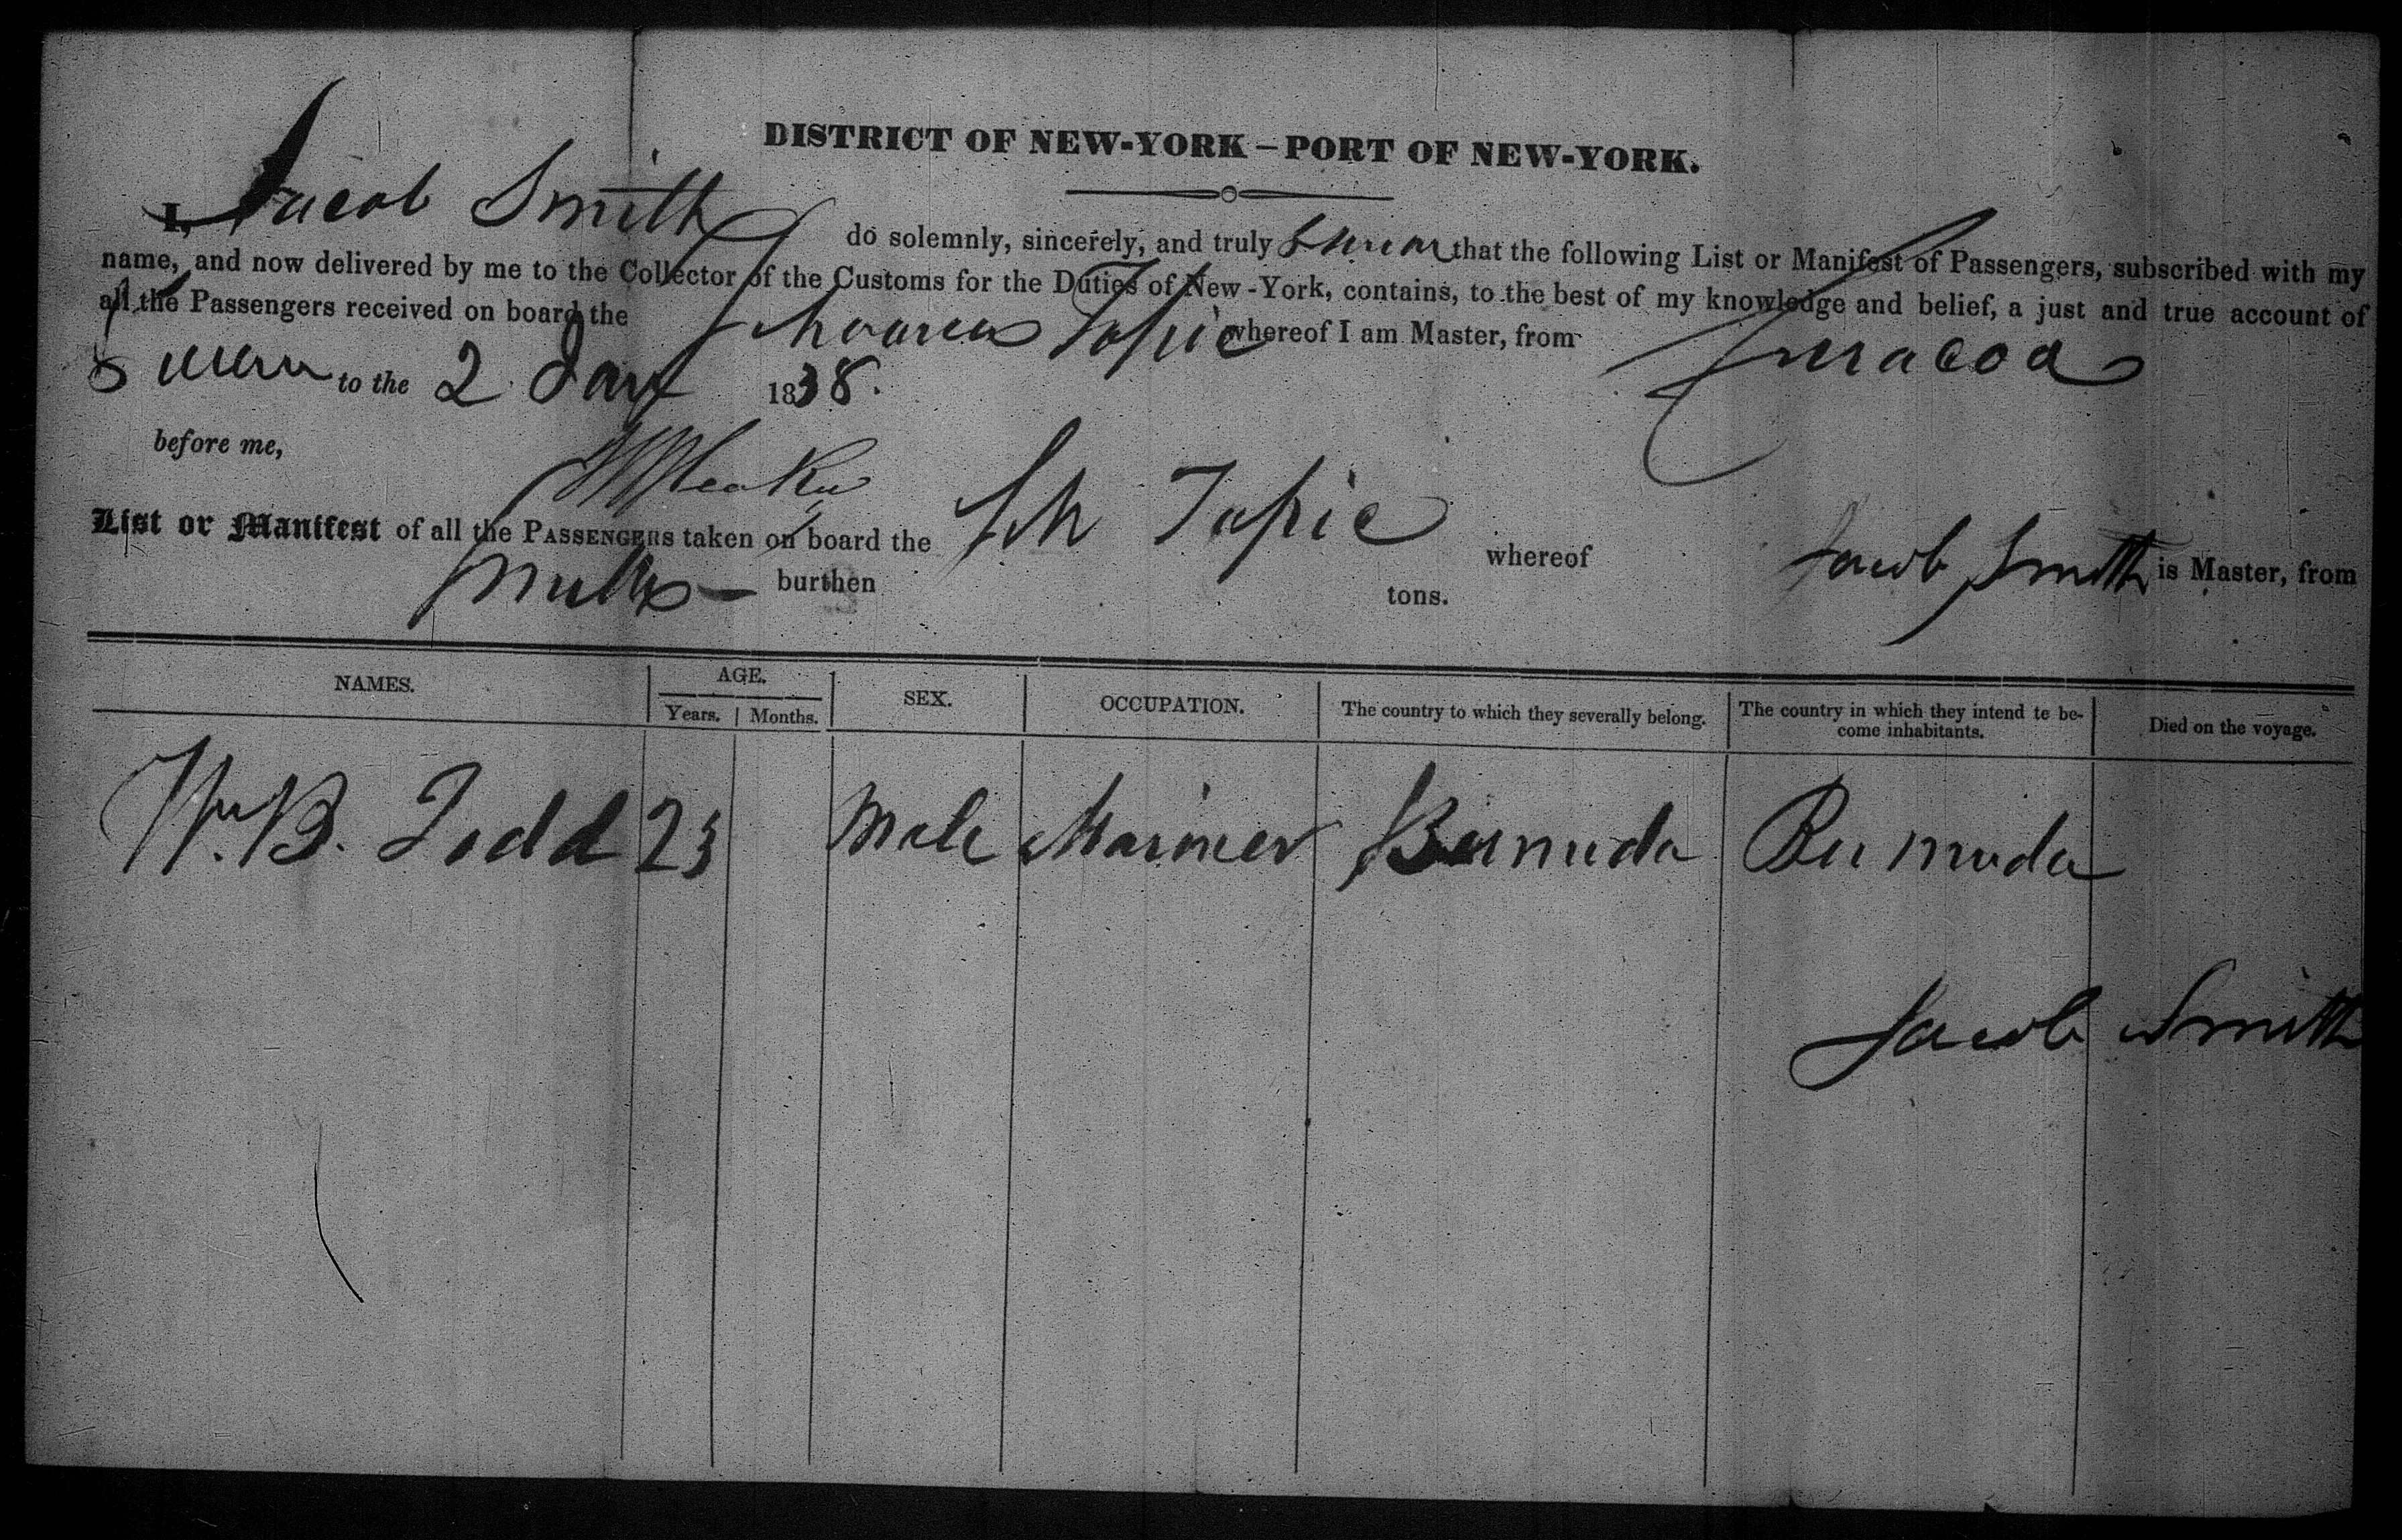 DISTRICT OF NEW-YORK – PORT OF NEW-YORK.
I, Jacob Smith do solemnly, sincerely, and truly swear that the following List or Manifest of Passengers, subscribed with my
name, and now delivered by me to the Collector of the Customs for the Duties of New-York, contains, to the best of my knowledge and belief, a just and true account of
all the Passengers received on board the Schooner Topic whereof I am Master, from Curacoa
Sworn to the 2 Jany 1838.
before me,
List or Manifest of all the PASSENGERS taken on board the Sch Topic whereof Jacob Smith is Master, from
burthen tons.
NAMES. AGE. SEX. OCCUPATION. The country to which they severally belong. The country in which they intend te be-come inhabitants. Died on the voyage.
Years. Months.
Wm B. Todd 23 Male Mariner Bermuda Bermuda
Jacob Smith